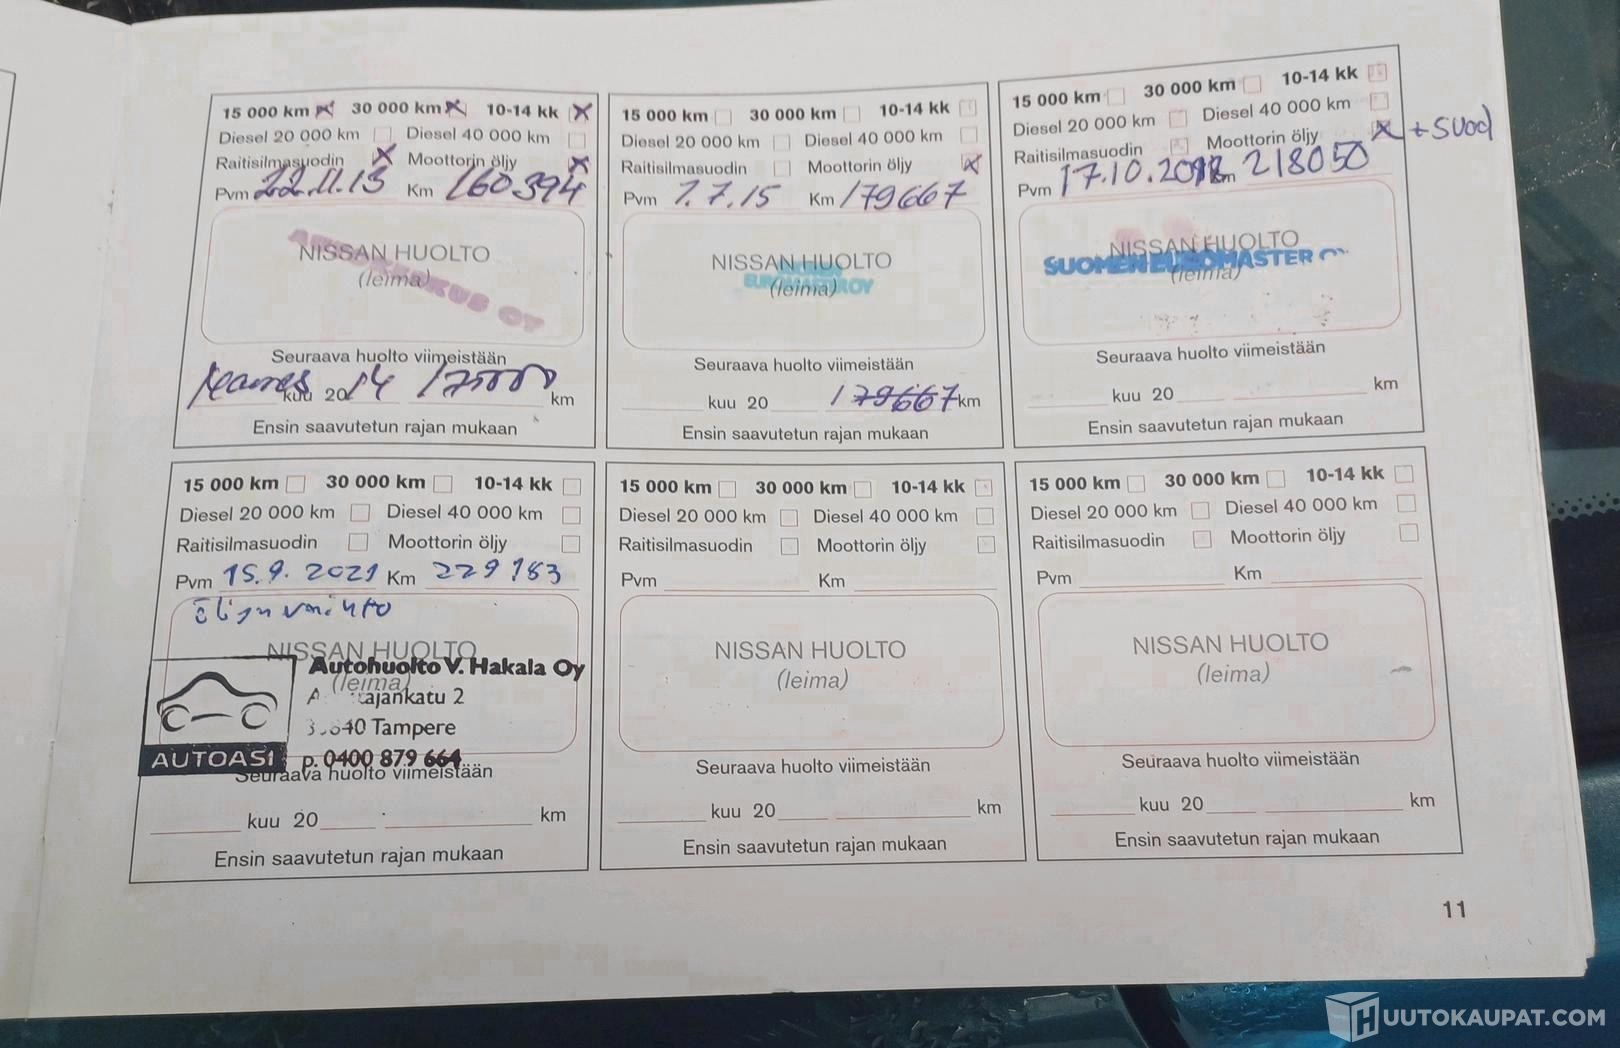 15 000 km 30 000 km 10-14 kk
Diesel 20 000 km Diesel 40 000 km
Raitisilmasuodin Moottorin öljy
Pvm 22.11.13 Km 160394
NISSAN HUOLTO
(leima)
OY
Seuraava huolto viimeistään
kuu 2014 175000 km
Ensin saavutetun rajan mukaan
15 000 km 30 000 km 10-14 kk
Diesel 20 000 km Diesel 40 000 km
Raitisilmasuodin Moottorin öljy
Pvm 1.7.15 Km 179667
NISSAN HUOLTO
(leima)
EUROMASTER OY
Seuraava huolto viimeistään
kuu 20 179667 km
Ensin saavutetun rajan mukaan
15 000 km 30 000 km 10-14 kk
Diesel 20 000 km Diesel 40 000 km
Raitisilmasuodin Moottorin öljy + SUOD
Pvm 17.10.2018 Km 218050
NISSAN HUOLTO
SUOMEN EUROMASTER OY
(leima)
Seuraava huolto viimeistään
kuu 20 km
Ensin saavutetun rajan mukaan
15 000 km 30 000 km 10-14 kk
Diesel 20 000 km Diesel 40 000 km
Raitisilmasuodin Moottorin öljy
Pvm 15.9.2021 Km 229183
öljyn vaihto
NISSAN HUOLTO
(leima)
Autohuolto V. Hakala Oy
ajankatu 2
Tampere
AUTOASI p. 0400 879 664
Seuraava huolto viimeistään
kuu 20 km
Ensin saavutetun rajan mukaan
15 000 km 30 000 km 10-14 kk
Diesel 20 000 km Diesel 40 000 km
Raitisilmasuodin Moottorin öljy
Pvm Km
NISSAN HUOLTO
(leima)
Seuraava huolto viimeistään
kuu 20 km
Ensin saavutetun rajan mukaan
15 000 km 30 000 km 10-14 kk
Diesel 20 000 km Diesel 40 000 km
Raitisilmasuodin Moottorin öljy
Pvm Km
NISSAN HUOLTO
(leima)
Seuraava huolto viimeistään
kuu 20 km
Ensin saavutetun rajan mukaan
11
HUUTOKAUPAT.COM